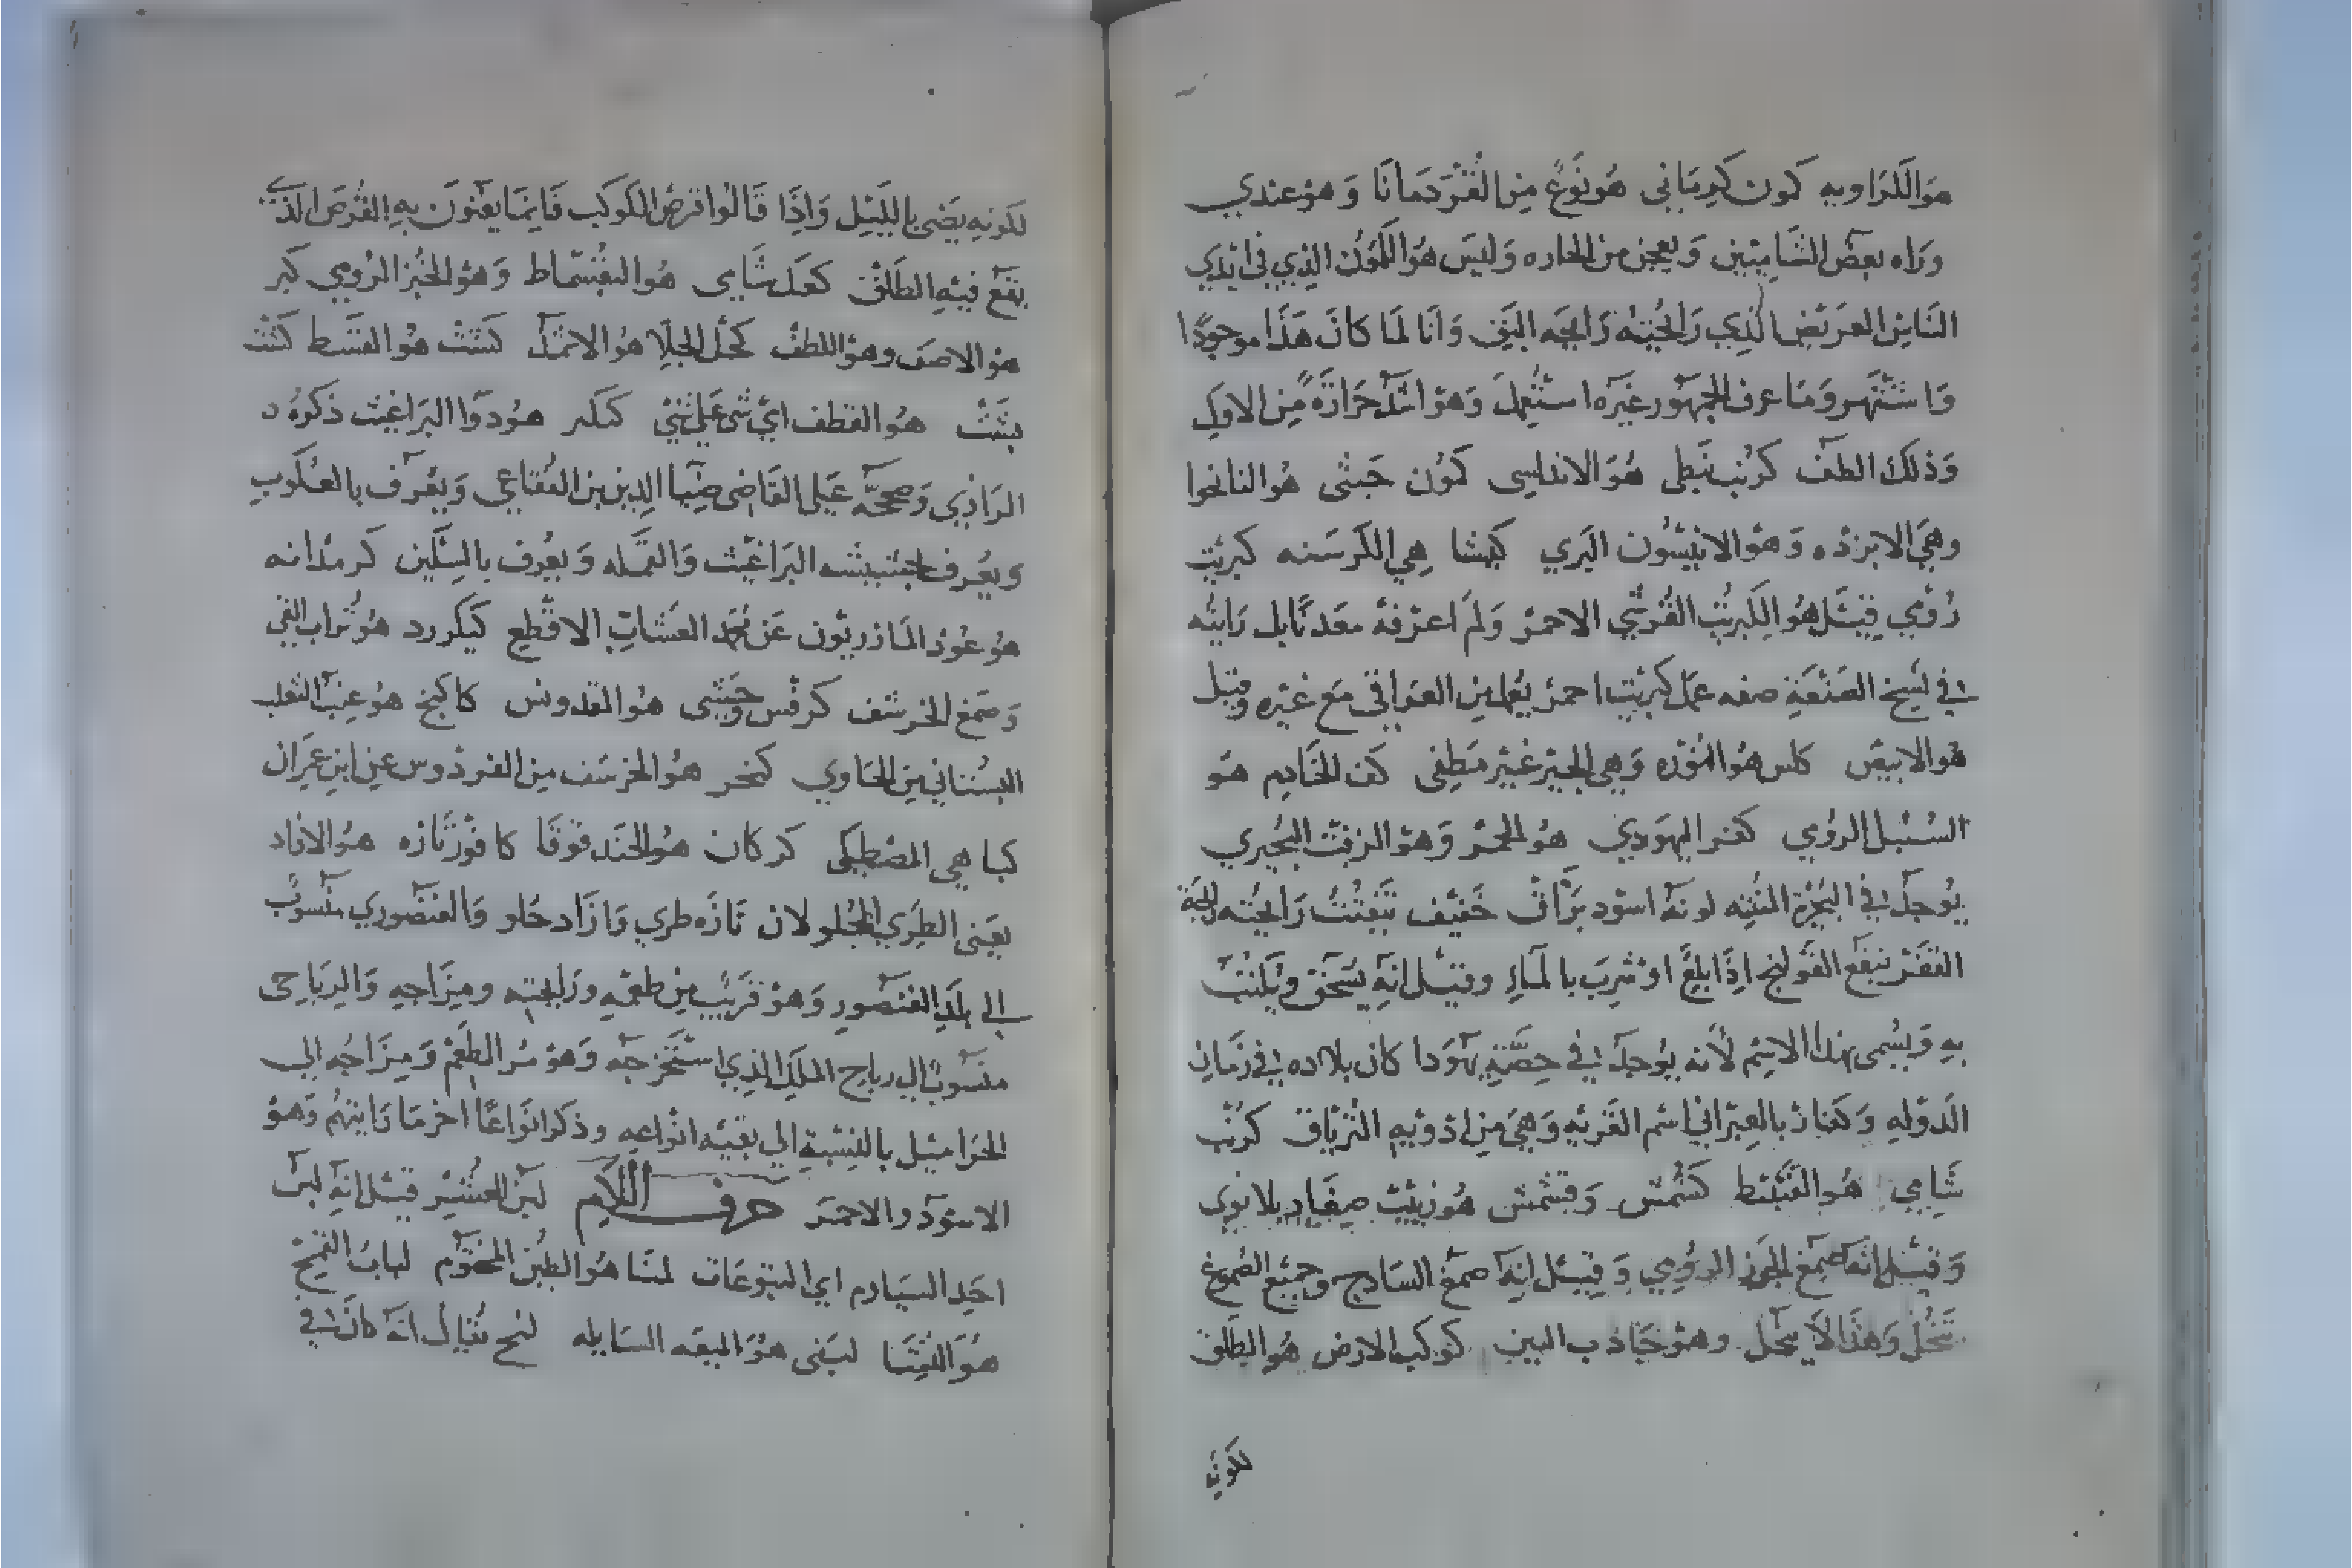 هو الكراويه كمون كرماني هو نوع من القردمانا وهو عندي
وراه بعض الشاميين ويعجن من الحاره وليس هو الكمون الذي في ايدي
الناس العريض الذي رايحته رايحه البق وانا لما كان هذا موجودا
واشتهر وما عرف الجمهور غيره استعمل وهو اشد حرارة من الاول
وذلك الطف كرنب نبطي هو الاندلسي كمون حبشي هو النانخوا
وهي الابزده وهو الانيسون البري كبشا هي الكرسنه كبريت
رومي قيل هو الكبريت القرشي الاحمر ولم اعرفه معدنا بل رايته
في نسخ الصنعة صفه عمل كبريت احمر يعمل من العراقي مع غيره وقيل
هو الابيض كلس هو النوره وهي الجير غير مطفى كف الخادم هو
السنبل الرومي كفر اليهودي هو الحمر وهو الزفت البحيري
يوجد في البحيرة المنتنه لونه اسود براق خفيف تنفتت رايحته رايحة
القفر ينفع القولنج اذا بلع او شرب بالماء وقيل انه يسحق ويكتب
به ويسمى بهذا الاسم لانه يوجد في حصة يهودا كان بلاده في زمان
الدوله وكفار بالعبراني اسم القريه وهي من ادويه الترياق كرنب
شامي هو القنبيط كشمش وقشمش هو زبيب صغار بلا نوى
وقيل انه صمغ الجوز الرومي وقيل انه صمغ الساذج وجميع الصموغ
تنحل وهذا لا ينحل وهو جاذب التبن كوكب الارض هو الطلق
لكونه
لكونه يضى بالليل واذا قالوا قرص الكوكب فانما يعنون به القرص الذي
يقع فيه الطلق كعك شامي هو البقسماط وهو الخبز الرومي كبر
هو الاصف وهو اللصف كحل الجلا هو الاثمد كشت هو القسط كشت
بشت هو القطف اي شي على شي كيكر هو دوا البراغيث ذكره
الرازي وصححه علي القاضي ضيا الدين بن الفقاعي ويعرف بالعكوب
ويعرف بحشيشه البراغيث والقمله ويعرف بالسلين كرمدانه
هو عود المازريون عن محمد العشاب الاقطع كيكر رد هو تراب القي
وصمغ الخرشف كرفس وحشى هو المقدونس كاكنج هو عنب الثعلب
البستاني من الحاوي كنجر هو الخرشف من الفردوس عن ابن عمران
كبا هي المصطكي كركان هو الحندقوقا كافور تازه هو الازاد
يعني الطري الحلو لان تازه طري وازاد حلو والفنصوري منسوب
الى بلد الفنصور وهو قريب من طعمه ورايحته ومزاجه والرياحي
منسوب الى رباح الملك الذي استخرجه وهو مر الطعم ومزاجه الى
الحرا ميل بالنسبة الى بقيه انواعه وذكر انواعا اخر ما رايتهم وهو
الاسود والاحمر حرف اللام لبن العشر قيل انه لبن
احد السيارم اي اليتوعات لمنا هو الطين المختوم لباب القمح
هو النشا لبنى هو الميعه السايله لنج يقال انه كان في